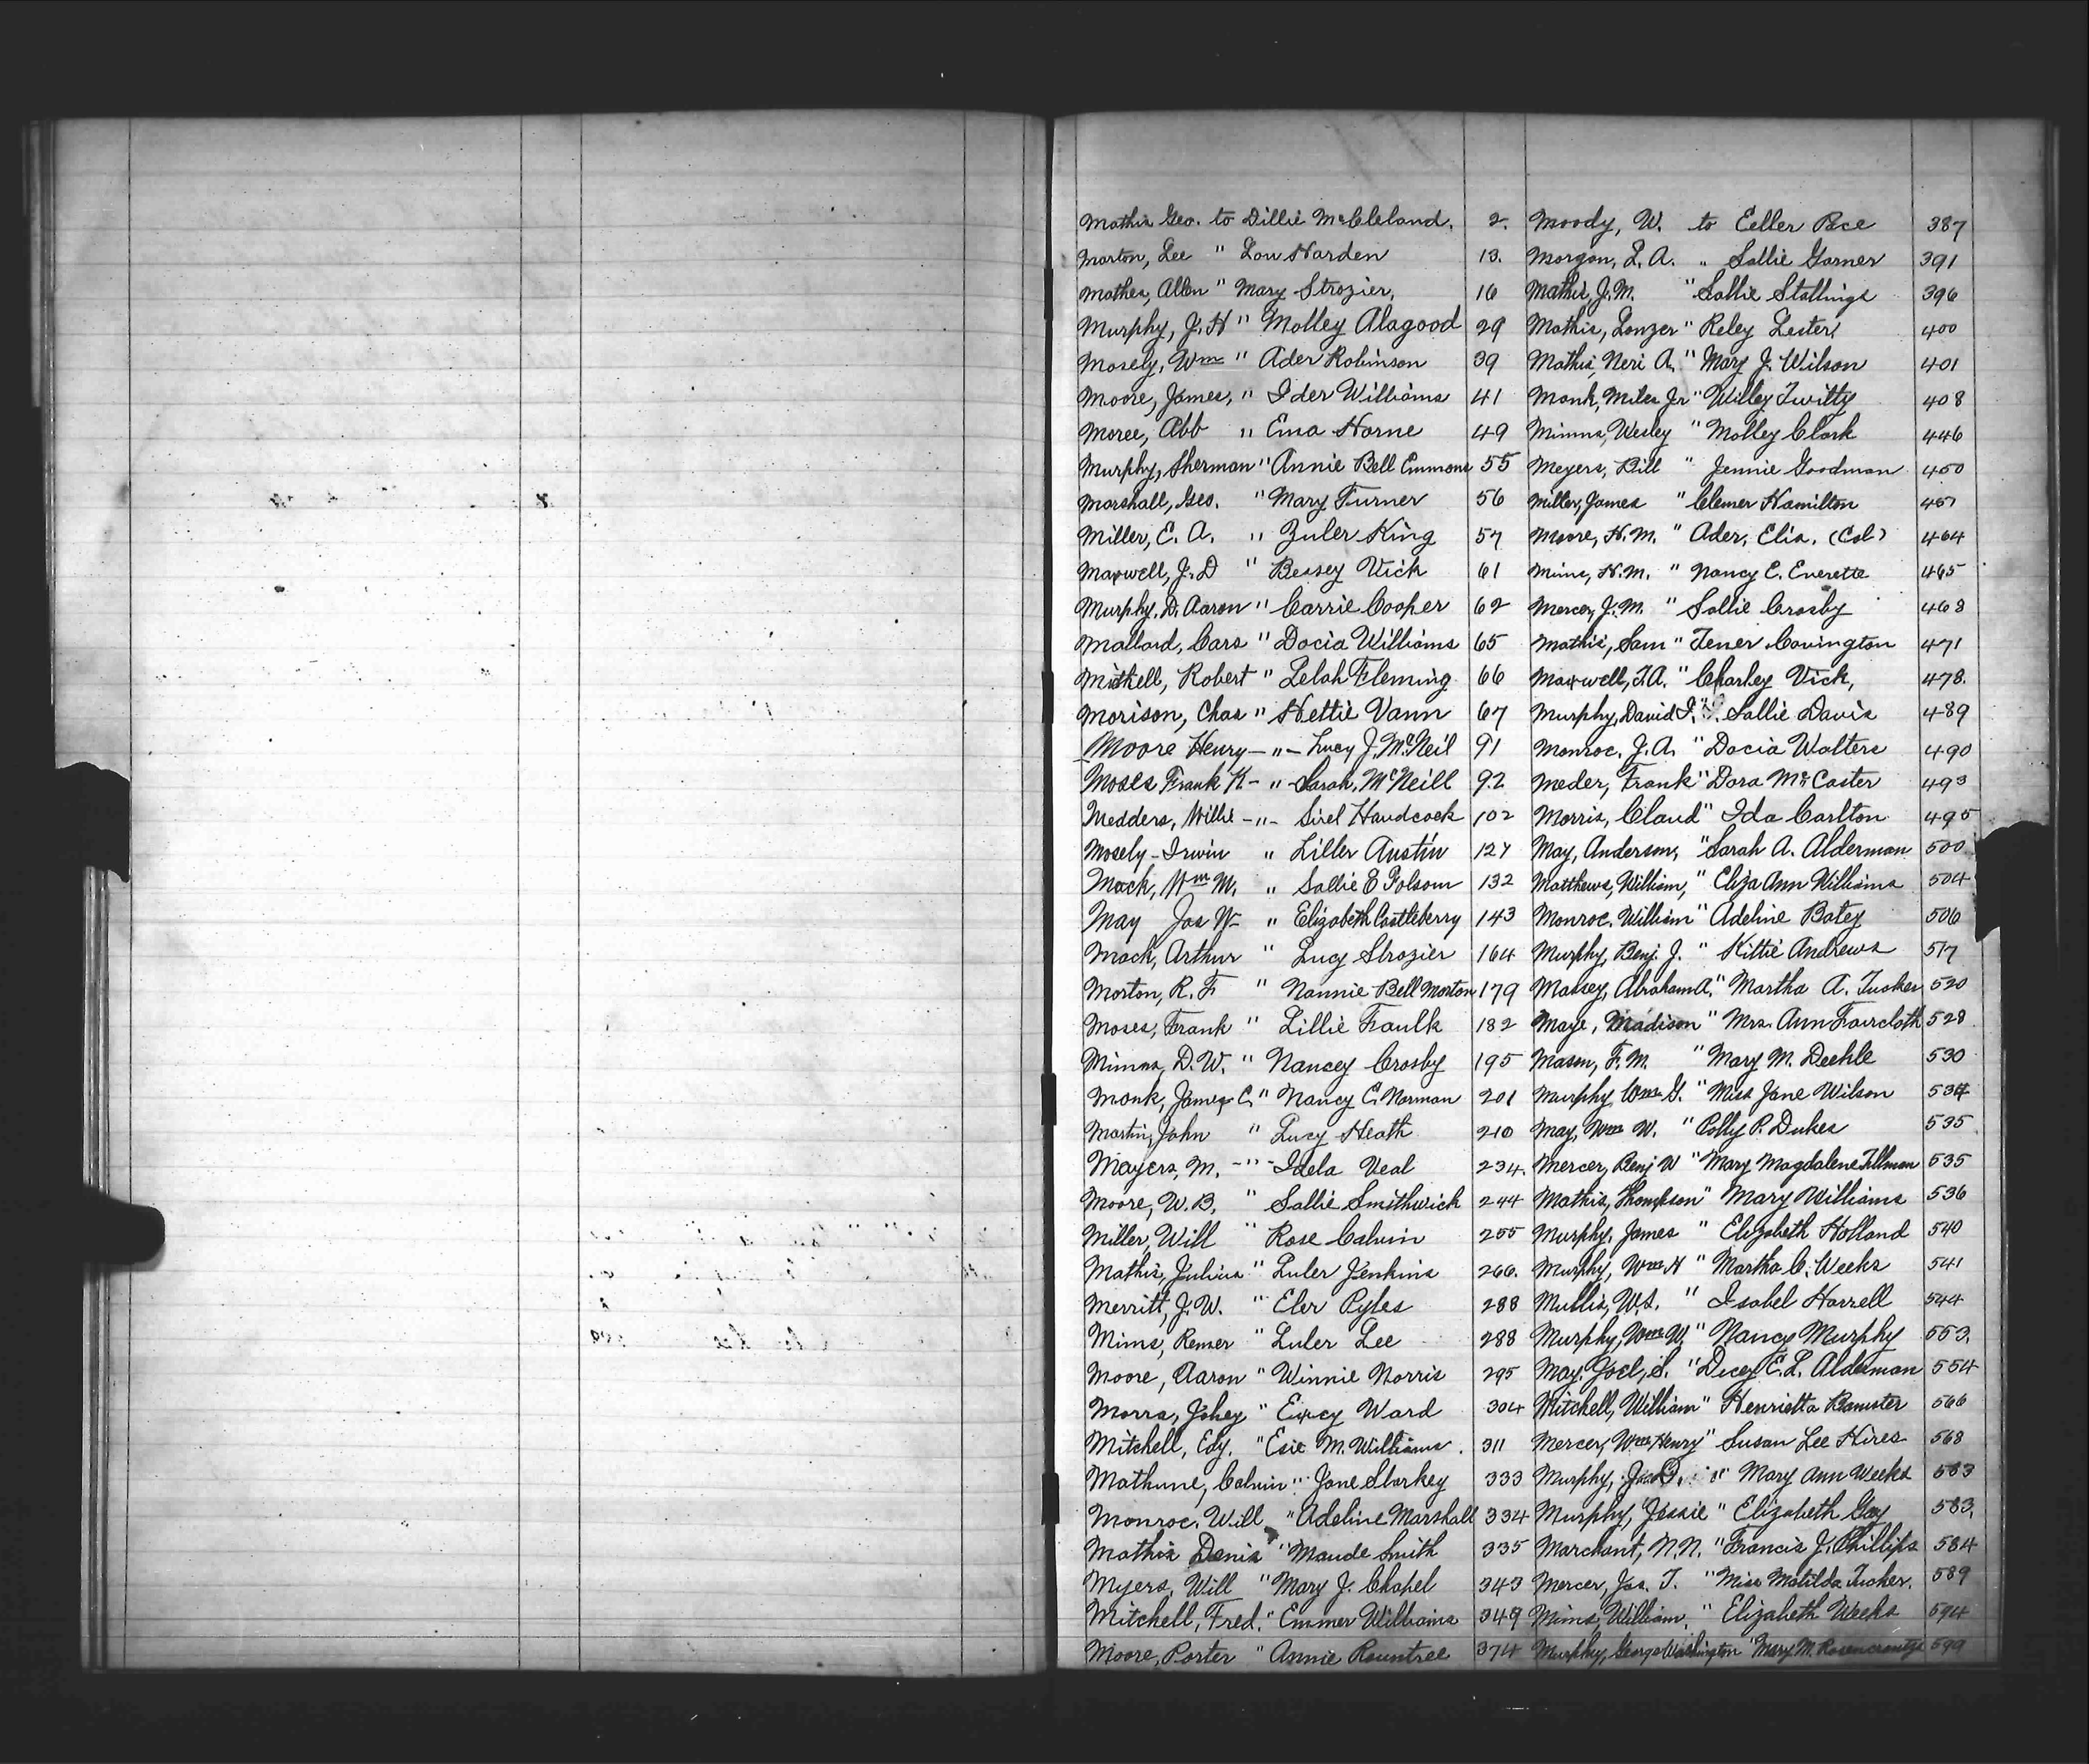 Mathis Geo. to Dillie McCleland. 2.
Morton, Lee " Lou Harden 13.
Mathes, Allen " Mary Strozier, 16
Murphy, J. H " Molley Alagood 29
Mosely, Wm " Ader Robinson 39
Moore, James, " Ider Williams 41
Moree, Abb " Ema Horne 49
Murphy, Sherman " Annie Bell Emmons 55
Marshall, Geo. " Mary Turner 56
Miller, E. A. " Zuler King 57
Maxwell, J. D " Bessey Vick 61
Murphy, D. Aaron " Carrie Cooper 62
Mallard, Cars " Docia Williams 65
Mitkell, Robert " Lelah Fleming 66
Morison, Chas " Hettie Vann 67
Moore Henry - " - Lucy J. McNeil 91
Moses Frank K - " Sarah, McNeill 92
Medders, Willie - " - Sirel Handcock 102
Mosely - Irwin " Liller Austin 127
Mack, Wm M. " Sallie E Folsom 132
May Jas W - " Elizabeth Castleberry 143
Mack, Arthur " Lucy Strozier 164
Morton, R. F " Nannie Bell Morton 179
Moses, Frank " Lillie Faulk 182
Mimms, D. W. " Nancey Crosby 195
Monk, James C. " Nancy C. Norman 201
Martin, John " Lucy Heath 210
Mayers, M. - " - Idela Veal 234.
Moore, W. B. " Sallie Smithwick 244
Miller, Will " Rose Calvin 255
Mathis, Julius " Luler Jenkins 266.
Merritt, J. W. " Eler Pyles 288
Mims, Remer " Luler Lee 288
Moore, Aaron " Winnie Norris 295
Morra, Johey " Exxcy Ward 304
Mitchell, Edy. " Esie M. Williams. 311
Mathune, Calvin " Jane Starkey 333
Monroe, Will " Adeline Marshall 334
Mathis Denis " Maude Smith 335
Myers, Will " Mary J. Chapel 343
Mitchell, Fred. " Emmer Williams 349
Moore, Porter " Annie Rountree 374
Moody, W. to Eeller Pace 387
Morgan, L. A. " Sallie Garner 391
Mathis, J. M. " Sallie Stallings 396
Mathis, Lonzer " Reley Lester 400
Mathis, Neri A. " Mary J. Wilson 401
Monk, Miles Jr " Willey Twitty 408
Mimms, Wesley " Molley Clark 446
Meyers, Bill " Jennie Goodman 450
Miller, James " Clemer Hamilton 457
Moore, H. M. " Ader, Elis. (Col) 464
Mims, H. M. " Nancy E. Everette 465
Mercer, J. M. " Sallie Crosby 468
Mathis, Sam " Tener Covington 471
Maxwell, T. A. " Charley Vick, 478.
Murphy, David I. " Sallie Davis 489
Monroe, J. A. " Docia Walters 490
Meder, Frank " Dora McCaster 493
Morris, Claud " Ida Carlton 495
May, Anderson, " Sarah A. Alderman 500
Matthews, William, " Eliza Ann Williams 504
Monroe, William " Adeline Batey 506
Murphy, Benj. J. " Kittie Andrews 517
Massey, Abraham A. " Martha A. Tucker 520
Maye, Madison " Mrs. Ann Faircloth 528
Mason, F. M. " Mary M. Deehle 530
Murphy Wm G. " Miss Jane Wilson 534
May, Wm W. " Polly P. Dukes 535
Mercer, Benj W " Mary Magdalene Tillman 535
Mathis, Thompson " Mary Williams 536
Murphy, James " Elizabeth Holland 540
Murphy, Wm H " Martha C. Weeks 541
Mullis, W. S. " Isabel Harrell 544
Murphy, Wm W. " Nancy Murphy 553.
May, Joel, S. " Dicey E. L. Alderman 554
Mitchell, William " Henrietta Banister 566
Mercer, Wm Henry " Susan Lee Hires 568
Murphy, Jas D. " Mary Ann Weeks 583
Murphy, Jessie " Elizabeth Gay 583.
Marchant, N. N. " Francis J. Phillips 584
Mercer, Jas. T. " Miss Matilda Tucker. 589
Mims, William, " Elizabeth Weeks 594
Murphy, George Washington " Mary M. Rosencrantze 599